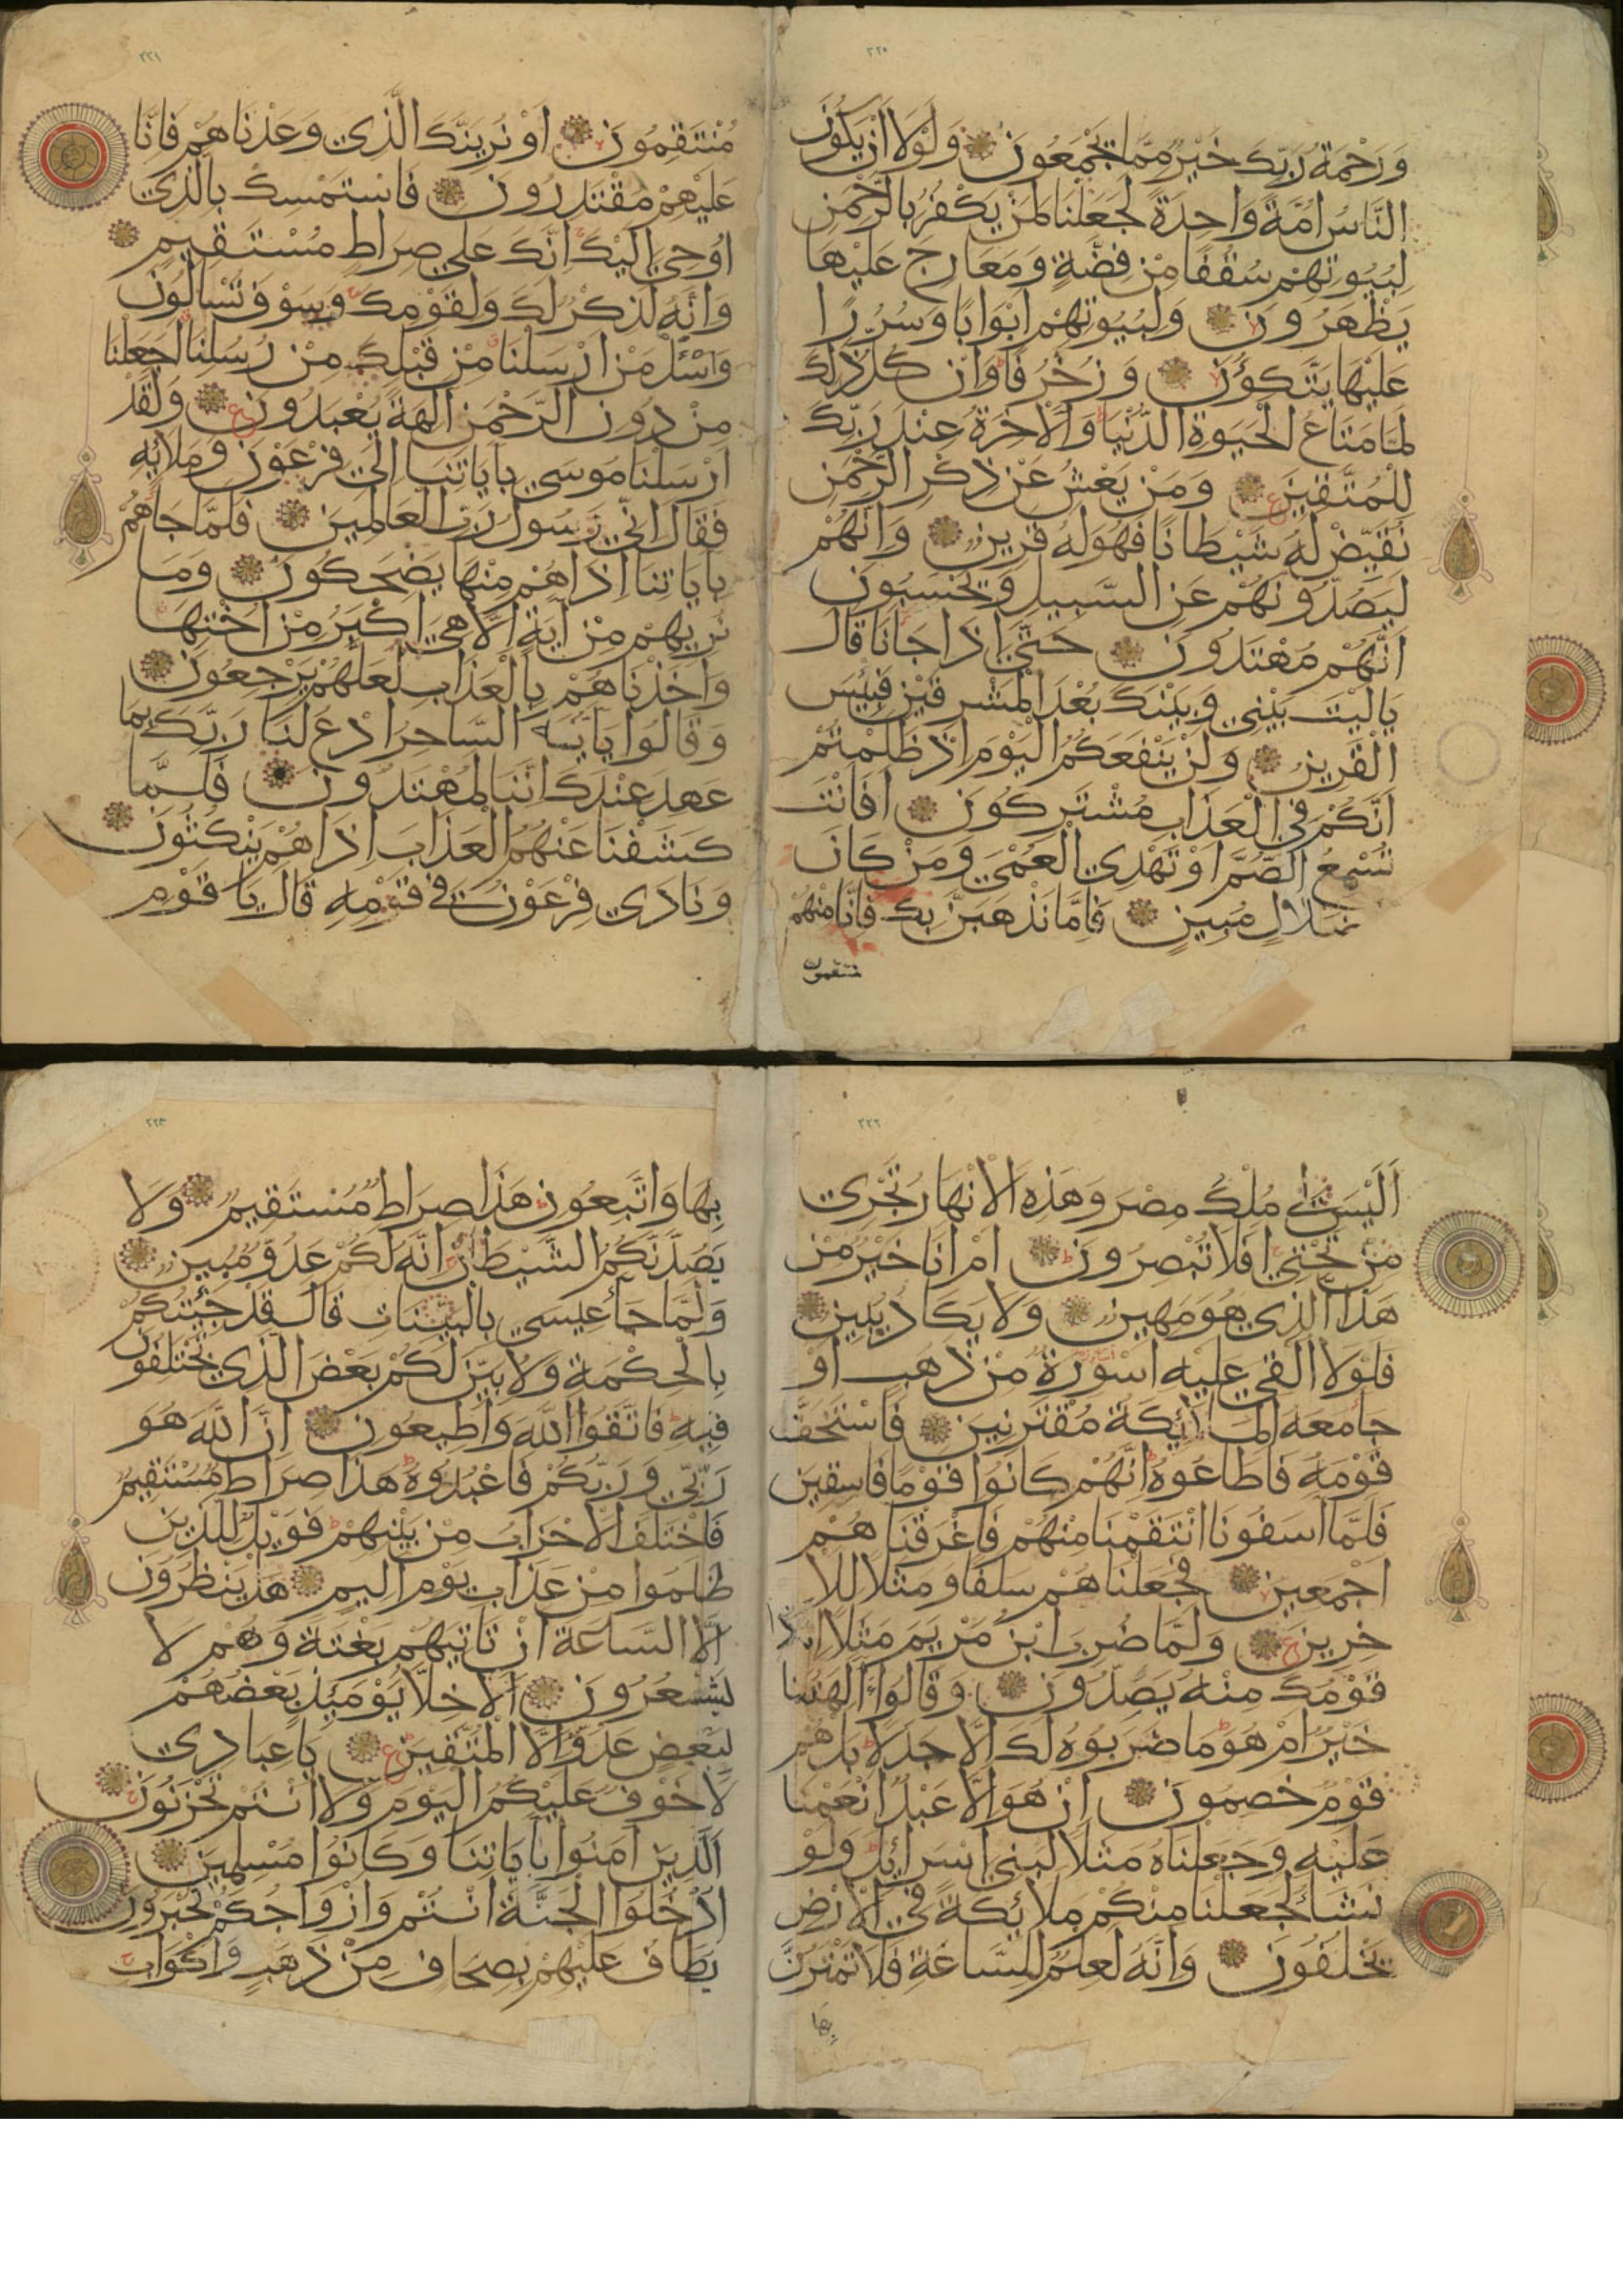 ٢٢٠
وَرَحْمَةُ رَبِّكَ خَيْرٌ مِمَّا يَجْمَعُونَ وَلَوْلَا أَنْ يَكُونَ
النَّاسُ أُمَّةً وَاحِدَةً لَجَعَلْنَا لِمَنْ يَكْفُرُ بِالرَّحْمٰنِ
لِبُيُوتِهِمْ سُقُفًا مِنْ فِضَّةٍ وَمَعَارِجَ عَلَيْهَا
يَظْهَرُونَ وَلِبُيُوتِهِمْ أَبْوَابًا وَسُرُرًا
عَلَيْهَا يَتَّكِؤُنَ وَزُخْرُفًا وَإِنْ كُلُّ ذٰلِكَ
لَمَّا مَتَاعُ الْحَيٰوةِ الدُّنْيَا وَالْآخِرَةُ عِنْدَ رَبِّكَ
لِلْمُتَّقِينَ وَمَنْ يَعْشُ عَنْ ذِكْرِ الرَّحْمٰنِ
نُقَيِّضْ لَهُ شَيْطَانًا فَهُوَ لَهُ قَرِينٌ وَإِنَّهُمْ
لَيَصُدُّونَهُمْ عَنِ السَّبِيلِ وَيَحْسَبُونَ
أَنَّهُمْ مُهْتَدُونَ حَتَّى إِذَا جَانَا قَالَ
يَالَيْتَ بَيْنِي وَبَيْنَكَ بُعْدَ الْمَشْرِقَيْنِ فَبِئْسَ
الْقَرِينُ وَلَنْ يَنْفَعَكُمُ الْيَوْمَ إِذْ ظَلَمْتُمْ
أَنَّكُمْ فِي الْعَذَابِ مُشْتَرِكُونَ أَفَأَنْتَ
تُسْمِعُ الصُّمَّ أَوْ تَهْدِي الْعُمْيَ وَمَنْ كَانَ
ضَلَالٍ مُبِينٍ فَإِمَّا نَذْهَبَنَّ بِكَ فَإِنَّا مِنْهُمْ
منتقمون
٢٢١
مُنْتَقِمُونَ أَوْ نُرِيَنَّكَ الَّذِي وَعَدْنَاهُمْ فَإِنَّا
عَلَيْهِمْ مُقْتَدِرُونَ فَاسْتَمْسِكْ بِالَّذِي
أُوحِيَ إِلَيْكَ إِنَّكَ عَلَى صِرَاطٍ مُسْتَقِيمٍ
وَإِنَّهُ لَذِكْرٌ لَكَ وَلِقَوْمِكَ وَسَوْفَ تُسْأَلُونَ
وَاسْئَلْ مَنْ أَرْسَلْنَا مِنْ قَبْلِكَ مِنْ رُسُلِنَا أَجَعَلْنَا
مِنْ دُونِ الرَّحْمٰنِ آلِهَةً يُعْبَدُونَ وَلَقَدْ
أَرْسَلْنَا مُوسَى بِآيَاتِنَا إِلَى فِرْعَوْنَ وَمَلَائِهِ
فَقَالَ إِنِّي رَسُولُ رَبِّ الْعَالَمِينَ فَلَمَّا جَاهُمْ
بِآيَاتِنَا إِذَا هُمْ مِنْهَا يَضْحَكُونَ وَمَا
نُرِيهِمْ مِنْ آيَةٍ إِلَّا هِيَ أَكْبَرُ مِنْ أُخْتِهَا
وَأَخَذْنَاهُمْ بِالْعَذَابِ لَعَلَّهُمْ يَرْجِعُونَ
وَقَالُوا يَا أَيُّهَ السَّاحِرُ ادْعُ لَنَا رَبَّكَ بِمَا
عَهِدَ عِنْدَكَ إِنَّنَا لَمُهْتَدُونَ فَلَمَّا
كَشَفْنَا عَنْهُمُ الْعَذَابَ إِذَا هُمْ يَنْكُثُونَ
وَنَادَى فِرْعَوْنُ فِي قَوْمِهِ قَالَ يَا قَوْمِ
٢٢٢
أَلَيْسَ لِي مُلْكُ مِصْرَ وَهَذِهِ الْأَنْهَارُ تَجْرِي
مِنْ تَحْتِي أَفَلَا تُبْصِرُونَ أَمْ أَنَا خَيْرٌ مِنْ
هَذَا الَّذِي هُوَ مَهِينٌ وَلَا يَكَادُ يُبِينُ
فَلَوْلَا أُلْقِيَ عَلَيْهِ أَسْوِرَةٌ مِنْ ذَهَبٍ أَوْ
جَا مَعَهُ الْمَلَائِكَةُ مُقْتَرِنِينَ فَاسْتَخَفَّ
قَوْمَهُ فَأَطَاعُوهُ إِنَّهُمْ كَانُوا قَوْمًا فَاسِقِينَ
فَلَمَّا آسَفُونَا انْتَقَمْنَا مِنْهُمْ فَأَغْرَقْنَاهُمْ
أَجْمَعِينَ فَجَعَلْنَاهُمْ سَلَفًا وَمَثَلًا لِلْآ
خِرِينَ وَلَمَّا ضُرِبَ ابْنُ مَرْيَمَ مَثَلًا إِذَا
قَوْمُكَ مِنْهُ يَصِدُّونَ وَقَالُوا ءَآلِهَتُنَا
خَيْرٌ أَمْ هُوَ مَا ضَرَبُوهُ لَكَ إِلَّا جَدَلًا بَلْ هُمْ
قَوْمٌ خَصِمُونَ إِنْ هُوَ إِلَّا عَبْدٌ أَنْعَمْنَا
عَلَيْهِ وَجَعَلْنَاهُ مَثَلًا لِبَنِي إِسْرَائِلَ وَلَوْ
نَشَاءُ لَجَعَلْنَا مِنْكُمْ مَلَائِكَةً فِي الْأَرْضِ
يَخْلُفُونَ وَإِنَّهُ لَعِلْمٌ لِلسَّاعَةِ فَلَا تَمْتَرُنَّ
بِهَا
٢٢٣
بِهَا وَاتَّبِعُونِ هَذَا صِرَاطٌ مُسْتَقِيمٌ وَلَا
يَصُدَّنَّكُمُ الشَّيْطَانُ إِنَّهُ لَكُمْ عَدُوٌّ مُبِينٌ
وَلَمَّا جَأَ عِيسَى بِالْبَيِّنَاتِ قَالَ قَدْ جِئْتُكُمْ
بِالْحِكْمَةِ وَلِأُبَيِّنَ لَكُمْ بَعْضَ الَّذِي تَخْتَلِفُونَ
فِيهِ فَاتَّقُوا اللَّهَ وَأَطِيعُونِ إِنَّ اللَّهَ هُوَ
رَبِّي وَرَبُّكُمْ فَاعْبُدُوهُ هَذَا صِرَاطٌ مُسْتَقِيمٌ
فَاخْتَلَفَ الْأَحْزَابُ مِنْ بَيْنِهِمْ فَوَيْلٌ لِلَّذِينَ
ظَلَمُوا مِنْ عَذَابِ يَوْمٍ أَلِيمٍ هَلْ يَنْظُرُونَ
إِلَّا السَّاعَةَ أَنْ تَأْتِيَهُمْ بَغْتَةً وَهُمْ لَا
يَشْعُرُونَ الْأَخِلَّا يَوْمَئِذٍ بَعْضُهُمْ
لِبَعْضٍ عَدُوٌّ إِلَّا الْمُتَّقِينَ يَا عِبَادِي
لَا خَوْفٌ عَلَيْكُمُ الْيَوْمَ وَلَا أَنْتُمْ تَحْزَنُونَ
الَّذِينَ آمَنُوا بِآيَاتِنَا وَكَانُوا مُسْلِمِينَ
ادْخُلُوا الْجَنَّةَ أَنْتُمْ وَأَزْوَاجُكُمْ تُحْبَرُونَ
يُطَافُ عَلَيْهِمْ بِصِحَافٍ مِنْ ذَهَبٍ وَأَكْوَابٍ